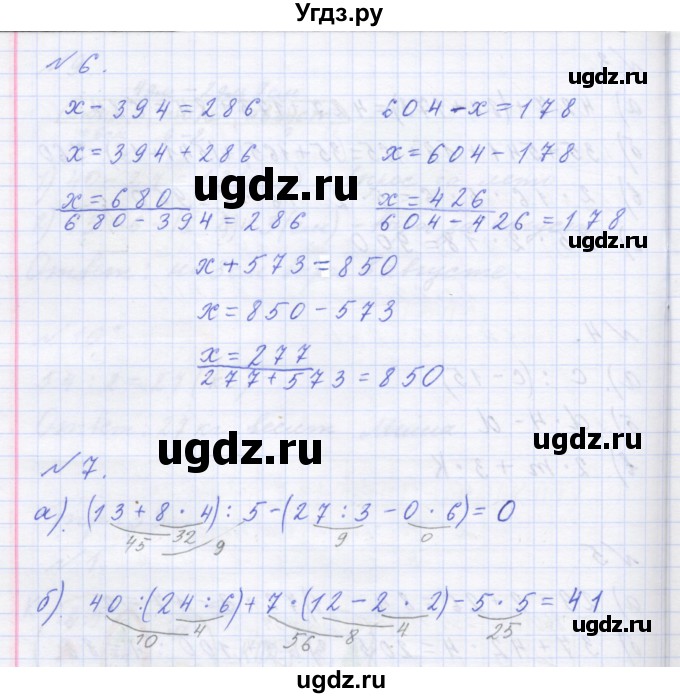 Угдз.ру
№ 6.
x - 394 = 286 604 - x = 178
x = 394 + 286 x = 604 - 178
x = 680 x = 426
680 - 394 = 286. 604 - 426 = 178
x + 573 = 850
x = 850 - 573
x = 277
277 + 573 = 850
№ 7.
а). (13 + 8 · 4) : 5 - (27 : 3 - 0 · 6) = 0
45 32 9 9 0
б). 40 : (24 : 6) + 7 · (12 - 2 · 2) - 5 · 5 = 41
10 4 56 8 4 25
ugdz.ru
ugdz.ru
ugdz.ru
ugdz.ru
ugdz.ru
ugdz.ru
ugdz.ru
ugdz.ru
ugdz.ru